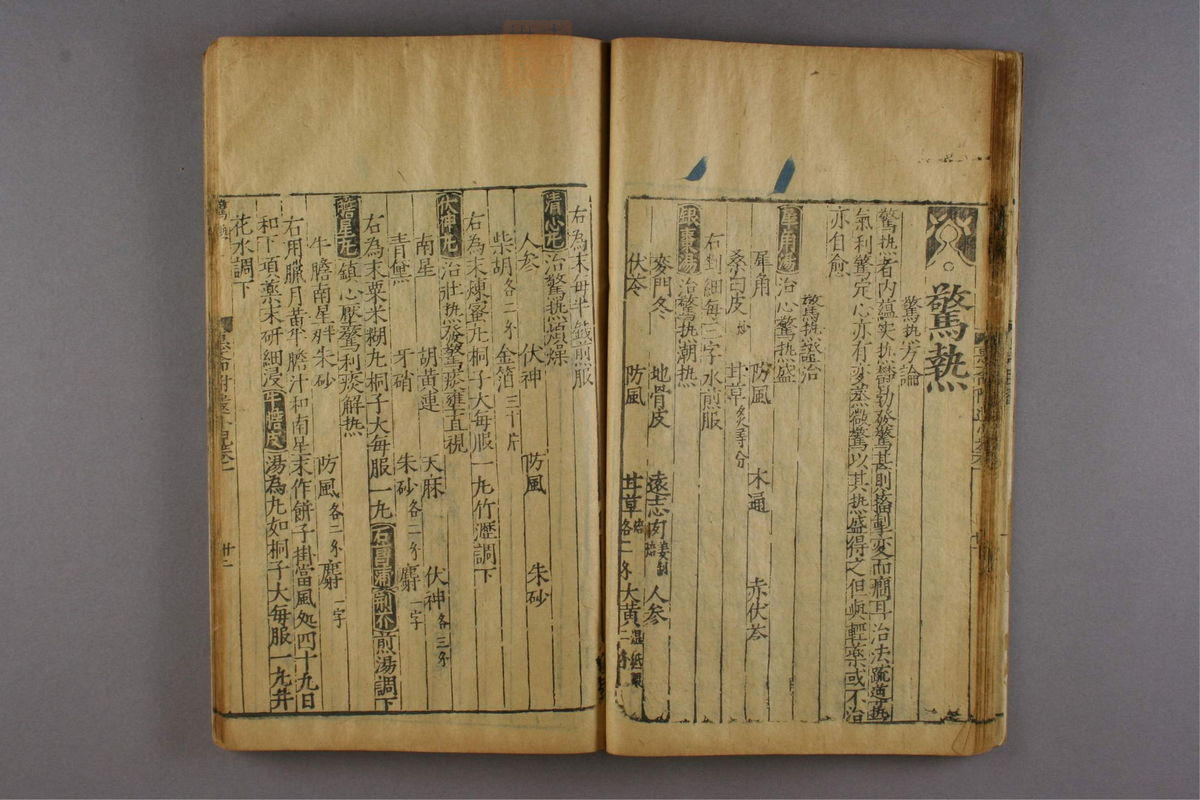 驚热
驚热方論
驚热者内蕴实热欝勃發驚甚則搐掣变而癇耳治法疏導热
氣利驚定心亦有变蒸微驚以其热盛得之但与輕藥或不治
亦自愈
驚热證治
犀角湯治心驚热盛
犀角 防風 木通 赤伏苓
桑白皮炒 甘草炙等分
右剉細每三字水煎服
銀棗湯治驚热潮热
麥門冬 地骨皮 遠志肉姜制焙 人参
伏苓 防風 甘草焙各二分 大黄濕紙裹
右為末每半錢煎服
清心丸治驚热煩燥
人参 伏神 防風 朱砂
柴胡各二分 金箔三十片
右為末煉蜜丸桐子大每服一丸竹瀝調下
伏神丸治壮热發驚痰壅直視
南星 胡黄連 天麻 伏神各三分
青黛 牙硝 朱砂各二分 麝一字
右為末粟米糊丸桐子大每服一丸石菖蒲薄荷煎湯調下
膽星丸鎮心壓驚利痰解热
牛膽南星 朱砂 防風各二分 麝一字
右用臘月黄牛膽汁和南星末作餅子掛當風処四十九日
和下項藥末研細浸牛膽皮湯為丸如桐子大每服一丸井
花水調下